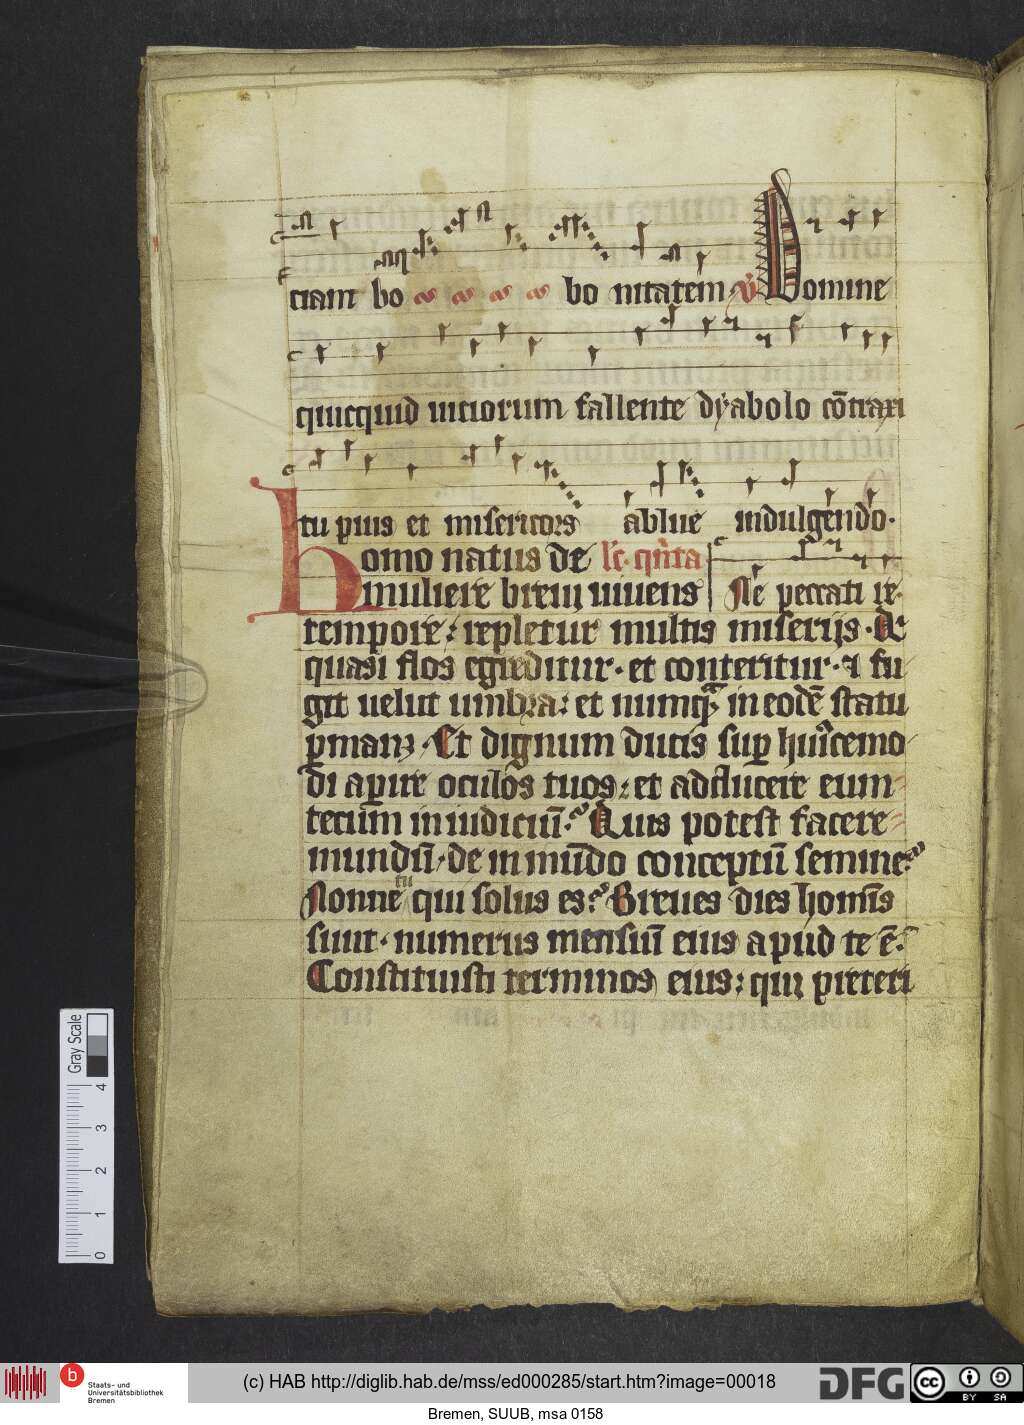 ciant bo bo nitatem. V Domine
quicquid uiciorum fallente dyabolo cōtraxi
tu pius et misericors abluē indulgendo.
Homo natus de lc̄. qn̄ta
muliere breui uiuens Ne peccati re.
tempore: repletur multis miserijs. Q
quasi flos egreditur. et conteritur. ⁊ fu
git uelut umbra: et numq̄ in eodē statu
ꝑmanꝫ. Et dignum ducis suꝑ huiꝰcemo
di aꝑire oculos tuos: et adducere eum
tecum in iudiciū. Quis potest facere
mundū. de inmūdo conceptū semine
Nonne tu qui solus es. Breues dies homīs
sunt. numerus mensiū eius apud te ē.
Constituisti terminos eius: qui preteri
Gray Scale
4
3
2
1
0
b Staats- und
Universitätsbibliothek
Bremen
(c) HAB http://diglib.hab.de/mss/ed000285/start.htm?image=00018
DFG
cc BY SA
Bremen, SUUB, msa 0158